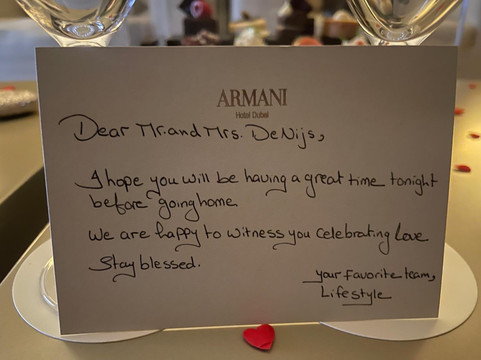 ARMANI
Hotel Dubai
Dear Mr. and Mrs. De Nijs,
I hope you will be having a great time tonight
before going home
We are happy to witness you celebrating love
Stay blessed.
your favorite team,
Lifestyle